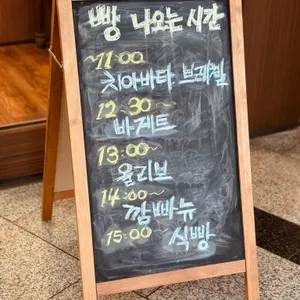 빵 나오는 시간
~11:00
치아바타 브레첼
12:30~
바게트
13:00~
올리브
14:00~
깜빠뉴
15:00~ 식빵